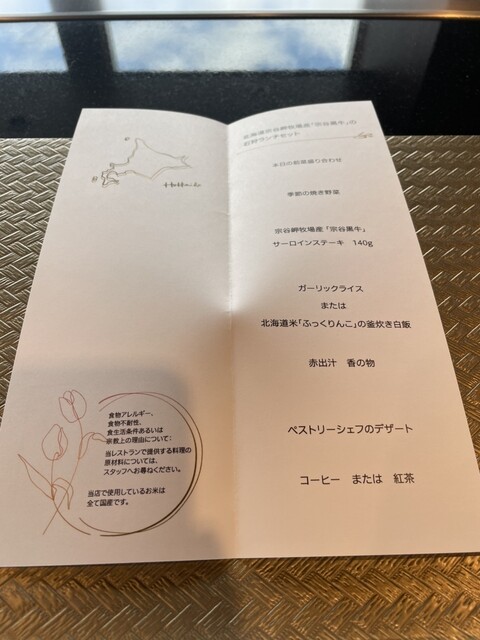 Hokkaido
食物アレルギー、
食物不耐性、
食生活条件あるいは
宗教上の理由について:
当レストランで提供する料理の
原材料については、
スタッフへお尋ねください。
当店で使用しているお米は
全て国産です。
北海道宗谷岬牧場産「宗谷黒牛」の
石狩ランチセット
本日の前菜盛り合わせ
季節の焼き野菜
宗谷岬牧場産「宗谷黒牛」
サーロインステーキ 140g
ガーリックライス
または
北海道米「ふっくりんこ」の釜炊き白飯
赤出汁 香の物
ペストリーシェフのデザート
コーヒー または 紅茶